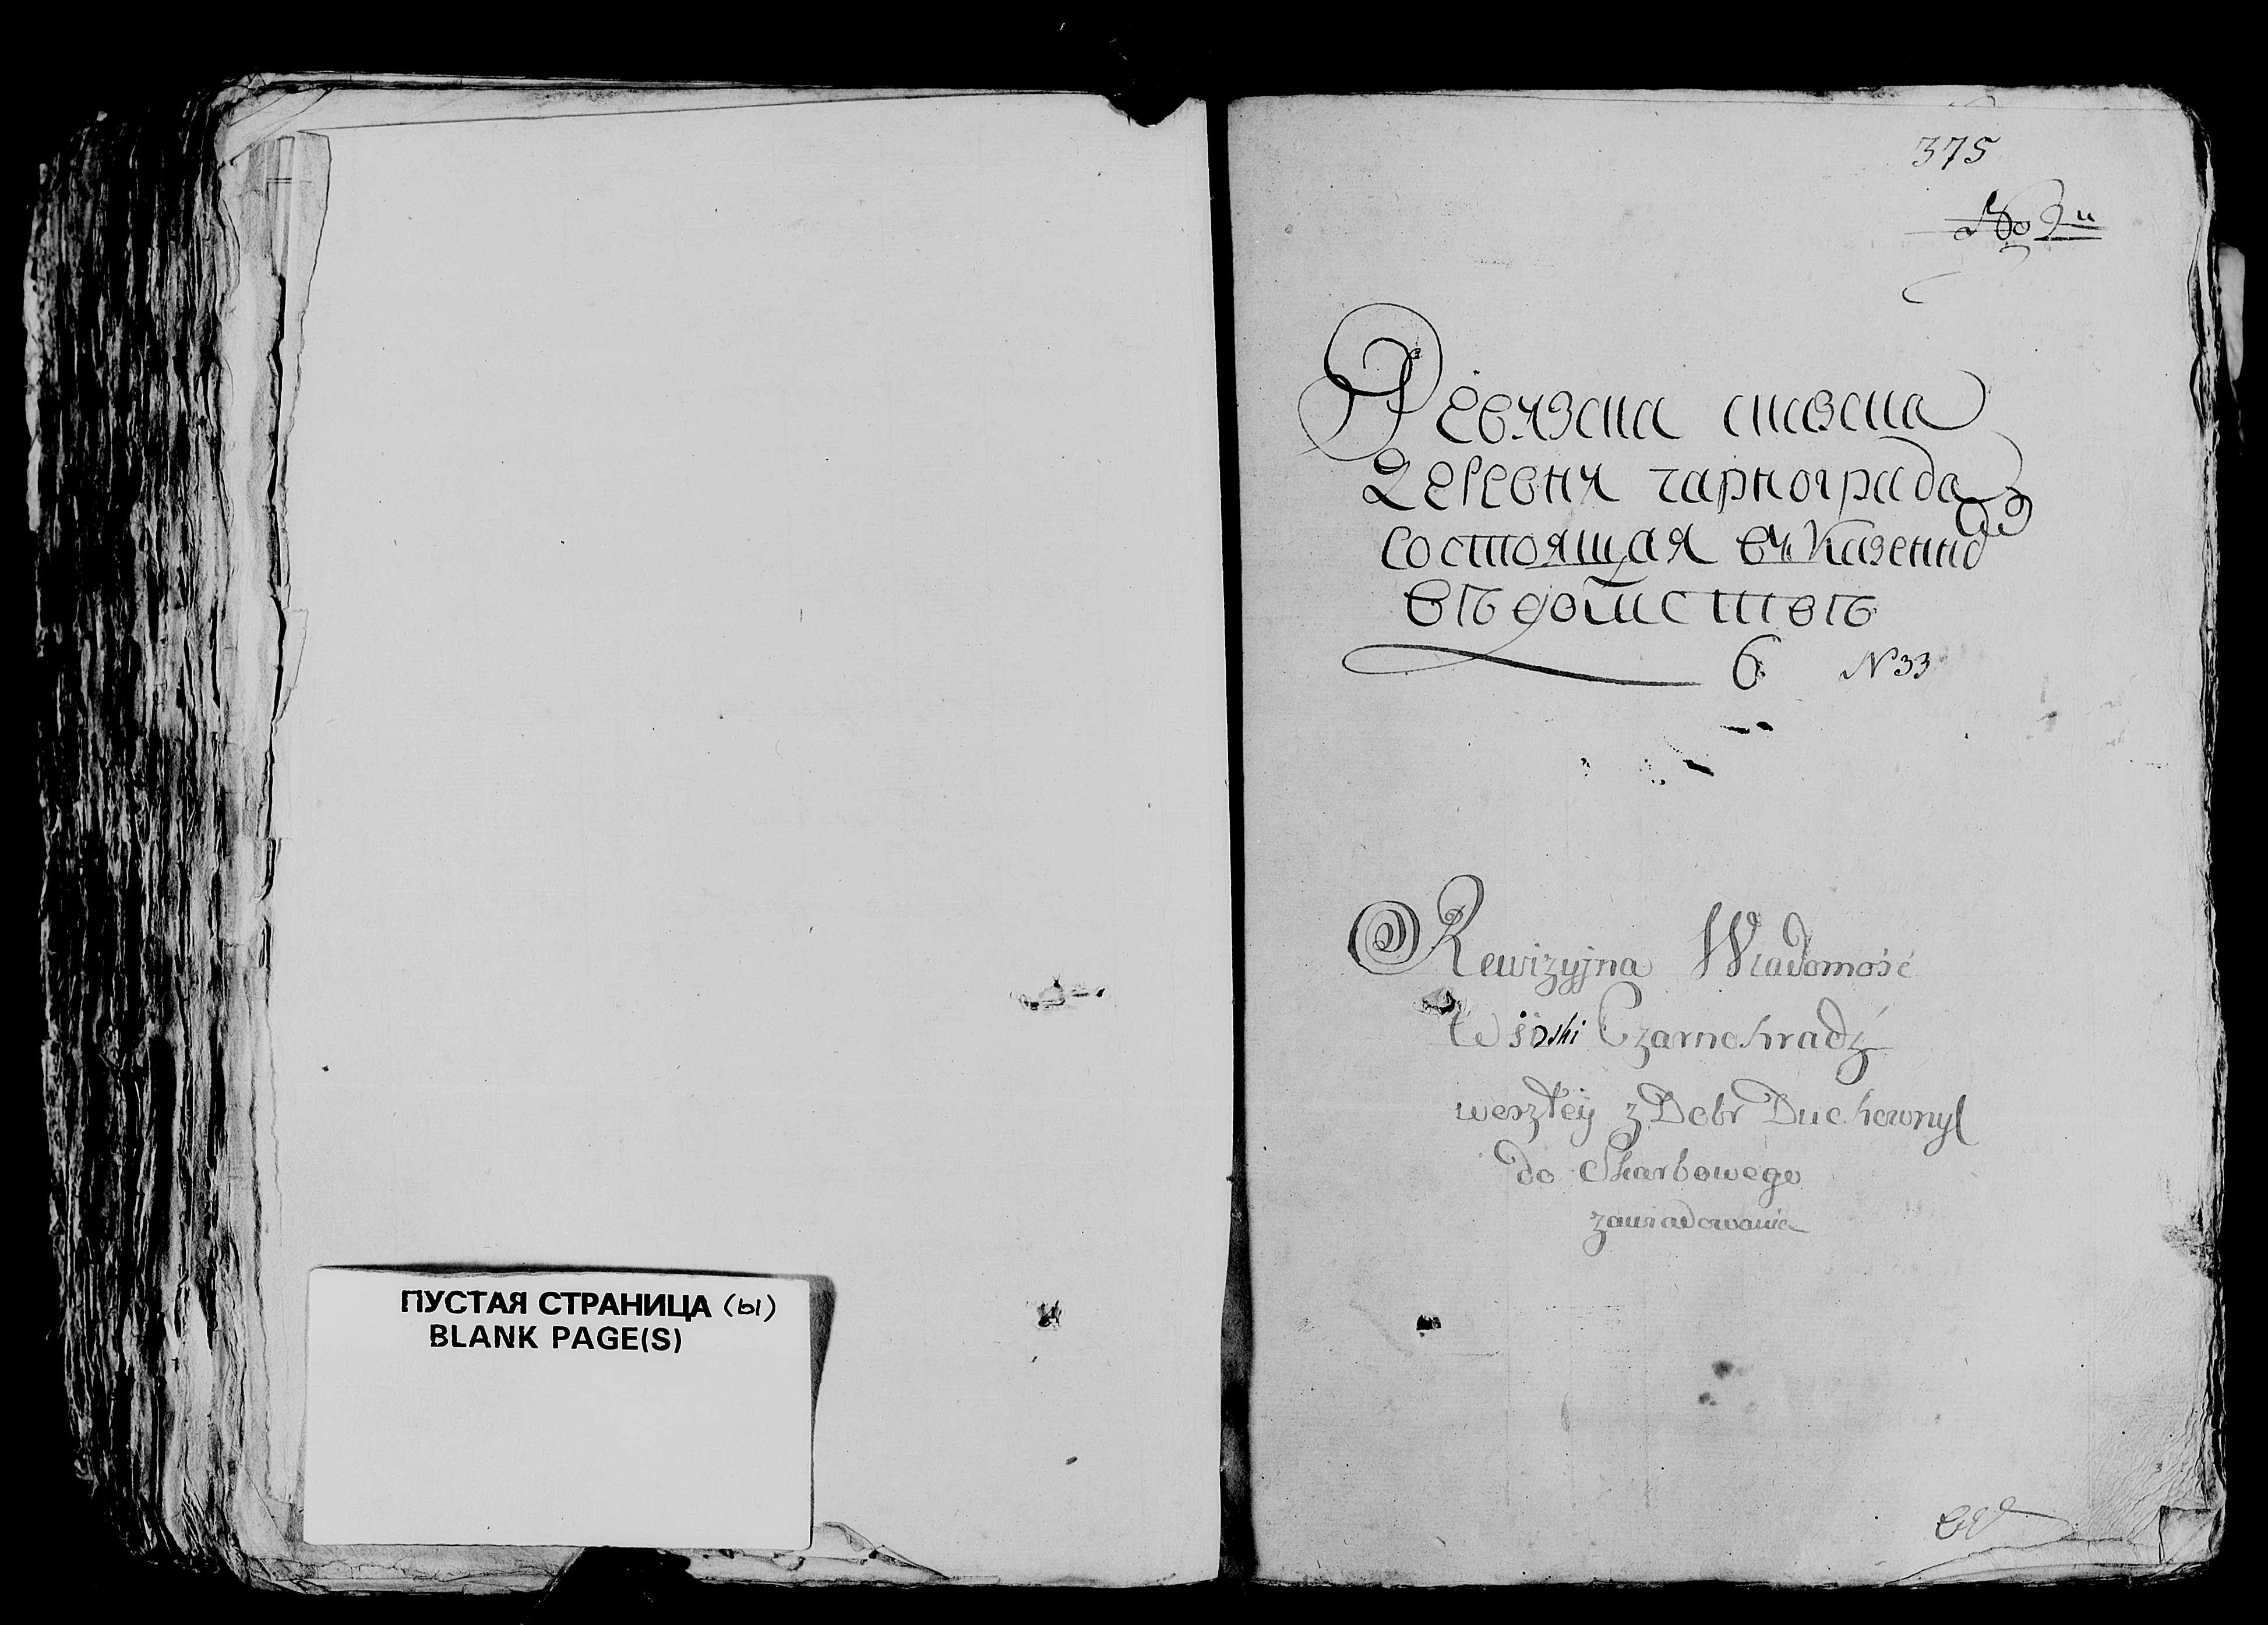 ПУСТАЯ СТРАНИЦА (ы)
BLANK PAGE(S)
375
Ревязска сказска
деревня чарнограда
состоящая въ Казенно
въдомствъ
6 N 33
Rewizyjna Wiadomość
Wioski Czarnohradź
weszłey z Dobr Duchownyl
do Skarbowego
zawiadowania